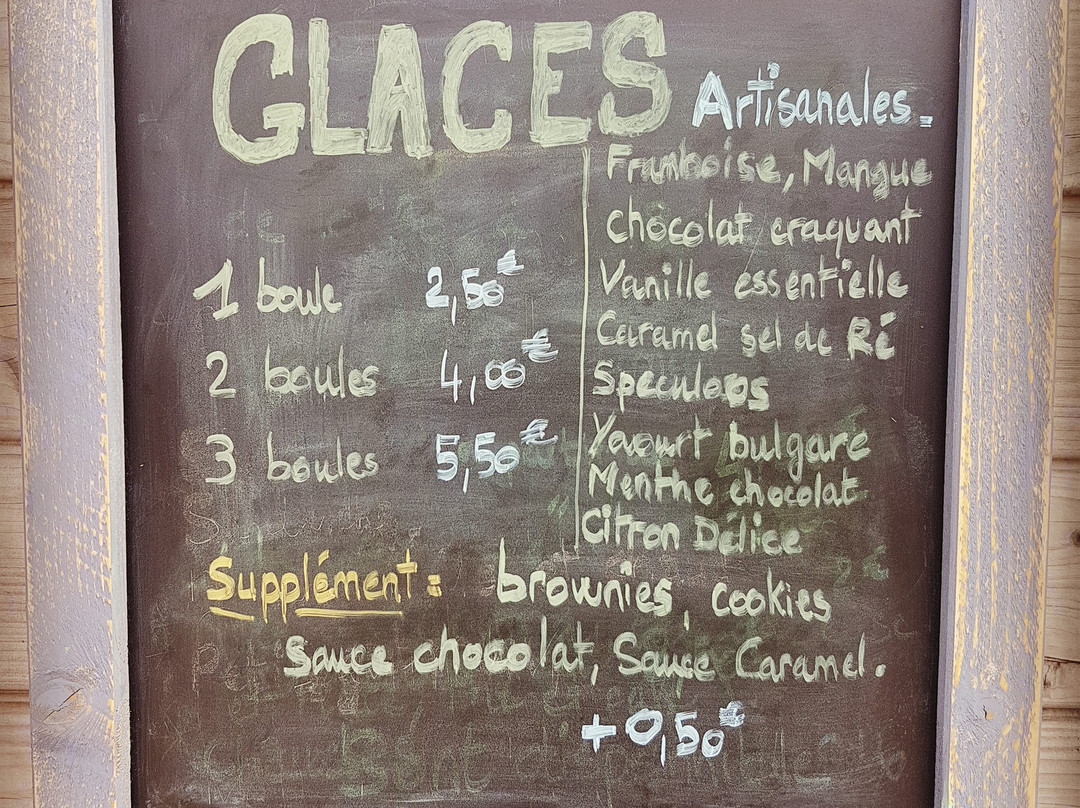 GLACES Artisanales.
Framboise, Mangue
chocolat craquant
Vanille essentielle
Caramel sel de Ré
Speculoos
Yaourt bulgare
Menthe chocolat
Citron Délice
1 boule 2,50€
2 boules 4,00€
3 boules 5,50€
Supplément: brownies, cookies
Sauce chocolat, Sauce Caramel.
+0,50€